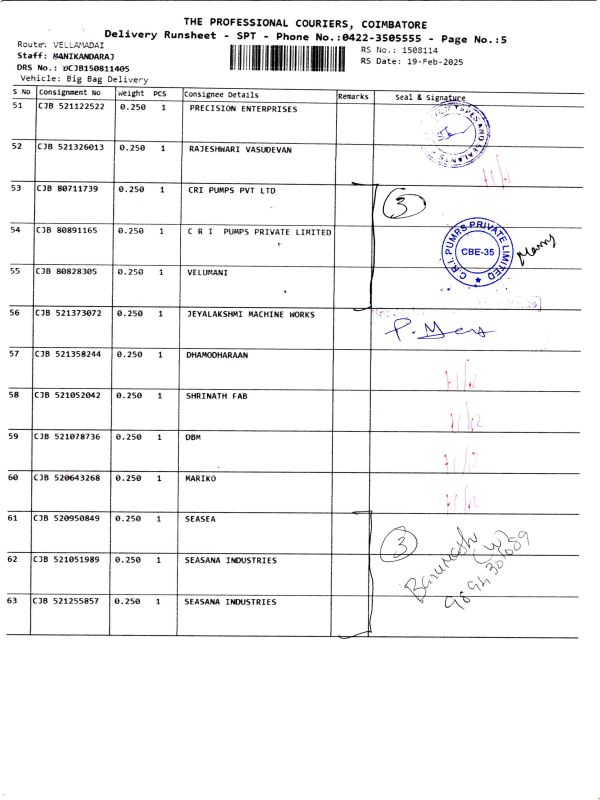 THE PROFESSIONAL COURIERS, COIMBATORE
Delivery Runsheet - SPT - Phone No.:0422-3505555 - Page No.:5
Route: VELLAMADAI
RS No.: 1508114
Staff: MANIKANDARAJ
RS Date: 19-Feb-2025
DRS No.: DCJB150811405
Vehicle: Big Bag Delivery
S No Consignment No Weight PCS Consignee Details Remarks Seal & Signature
51 CJB 521122522 0.250 1 PRECISION ENTERPRISES
AND SEALANTS
52 CJB 521326013 0.250 1 RAJESHWARI VASUDEVAN
53 CJB 80711739 0.250 1 CRI PUMPS PVT LTD
3
54 CJB 80891165 0.250 1 C R I PUMPS PRIVATE LIMITED
C.R.I. PUMPS PRIVATE LIMITED
CBE-35
55 CJB 80828305 0.250 1 VELUMANI
56 CJB 521373072 0.250 1 JEYALAKSHMI MACHINE WORKS
57 CJB 521358244 0.250 1 DHAMODHARAAN
58 CJB 521052042 0.250 1 SHRINATH FAB
59 CJB 521078736 0.250 1 DBM
60 CJB 520643268 0.250 1 MARIKO
61 CJB 520950849 0.250 1 SEASEA
3
62 CJB 521051989 0.250 1 SEASANA INDUSTRIES
63 CJB 521255857 0.250 1 SEASANA INDUSTRIES